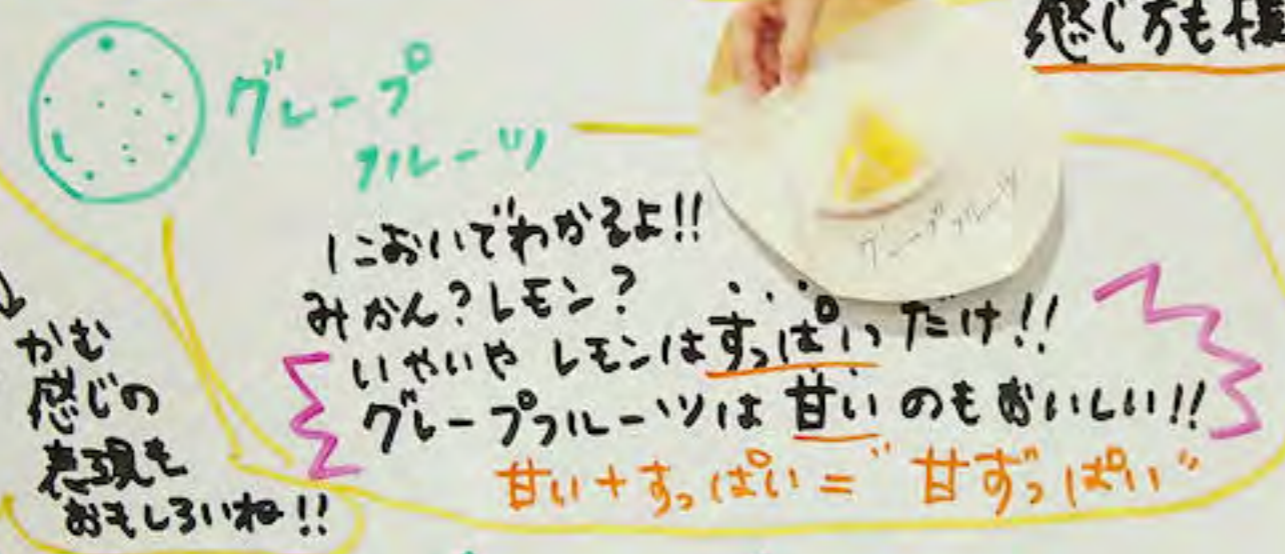 感じ方も様
グレープ
フルーツ
グレープフルーツ
においでわかるよ!!
みかん?レモン?
いやいや レモンはすっぱいだけ!!
グレープフルーツは 甘い のもおいしい!!
甘い+すっぱい="甘ずっぱい"
かむ
感じの
表現も
おもしろいね!!